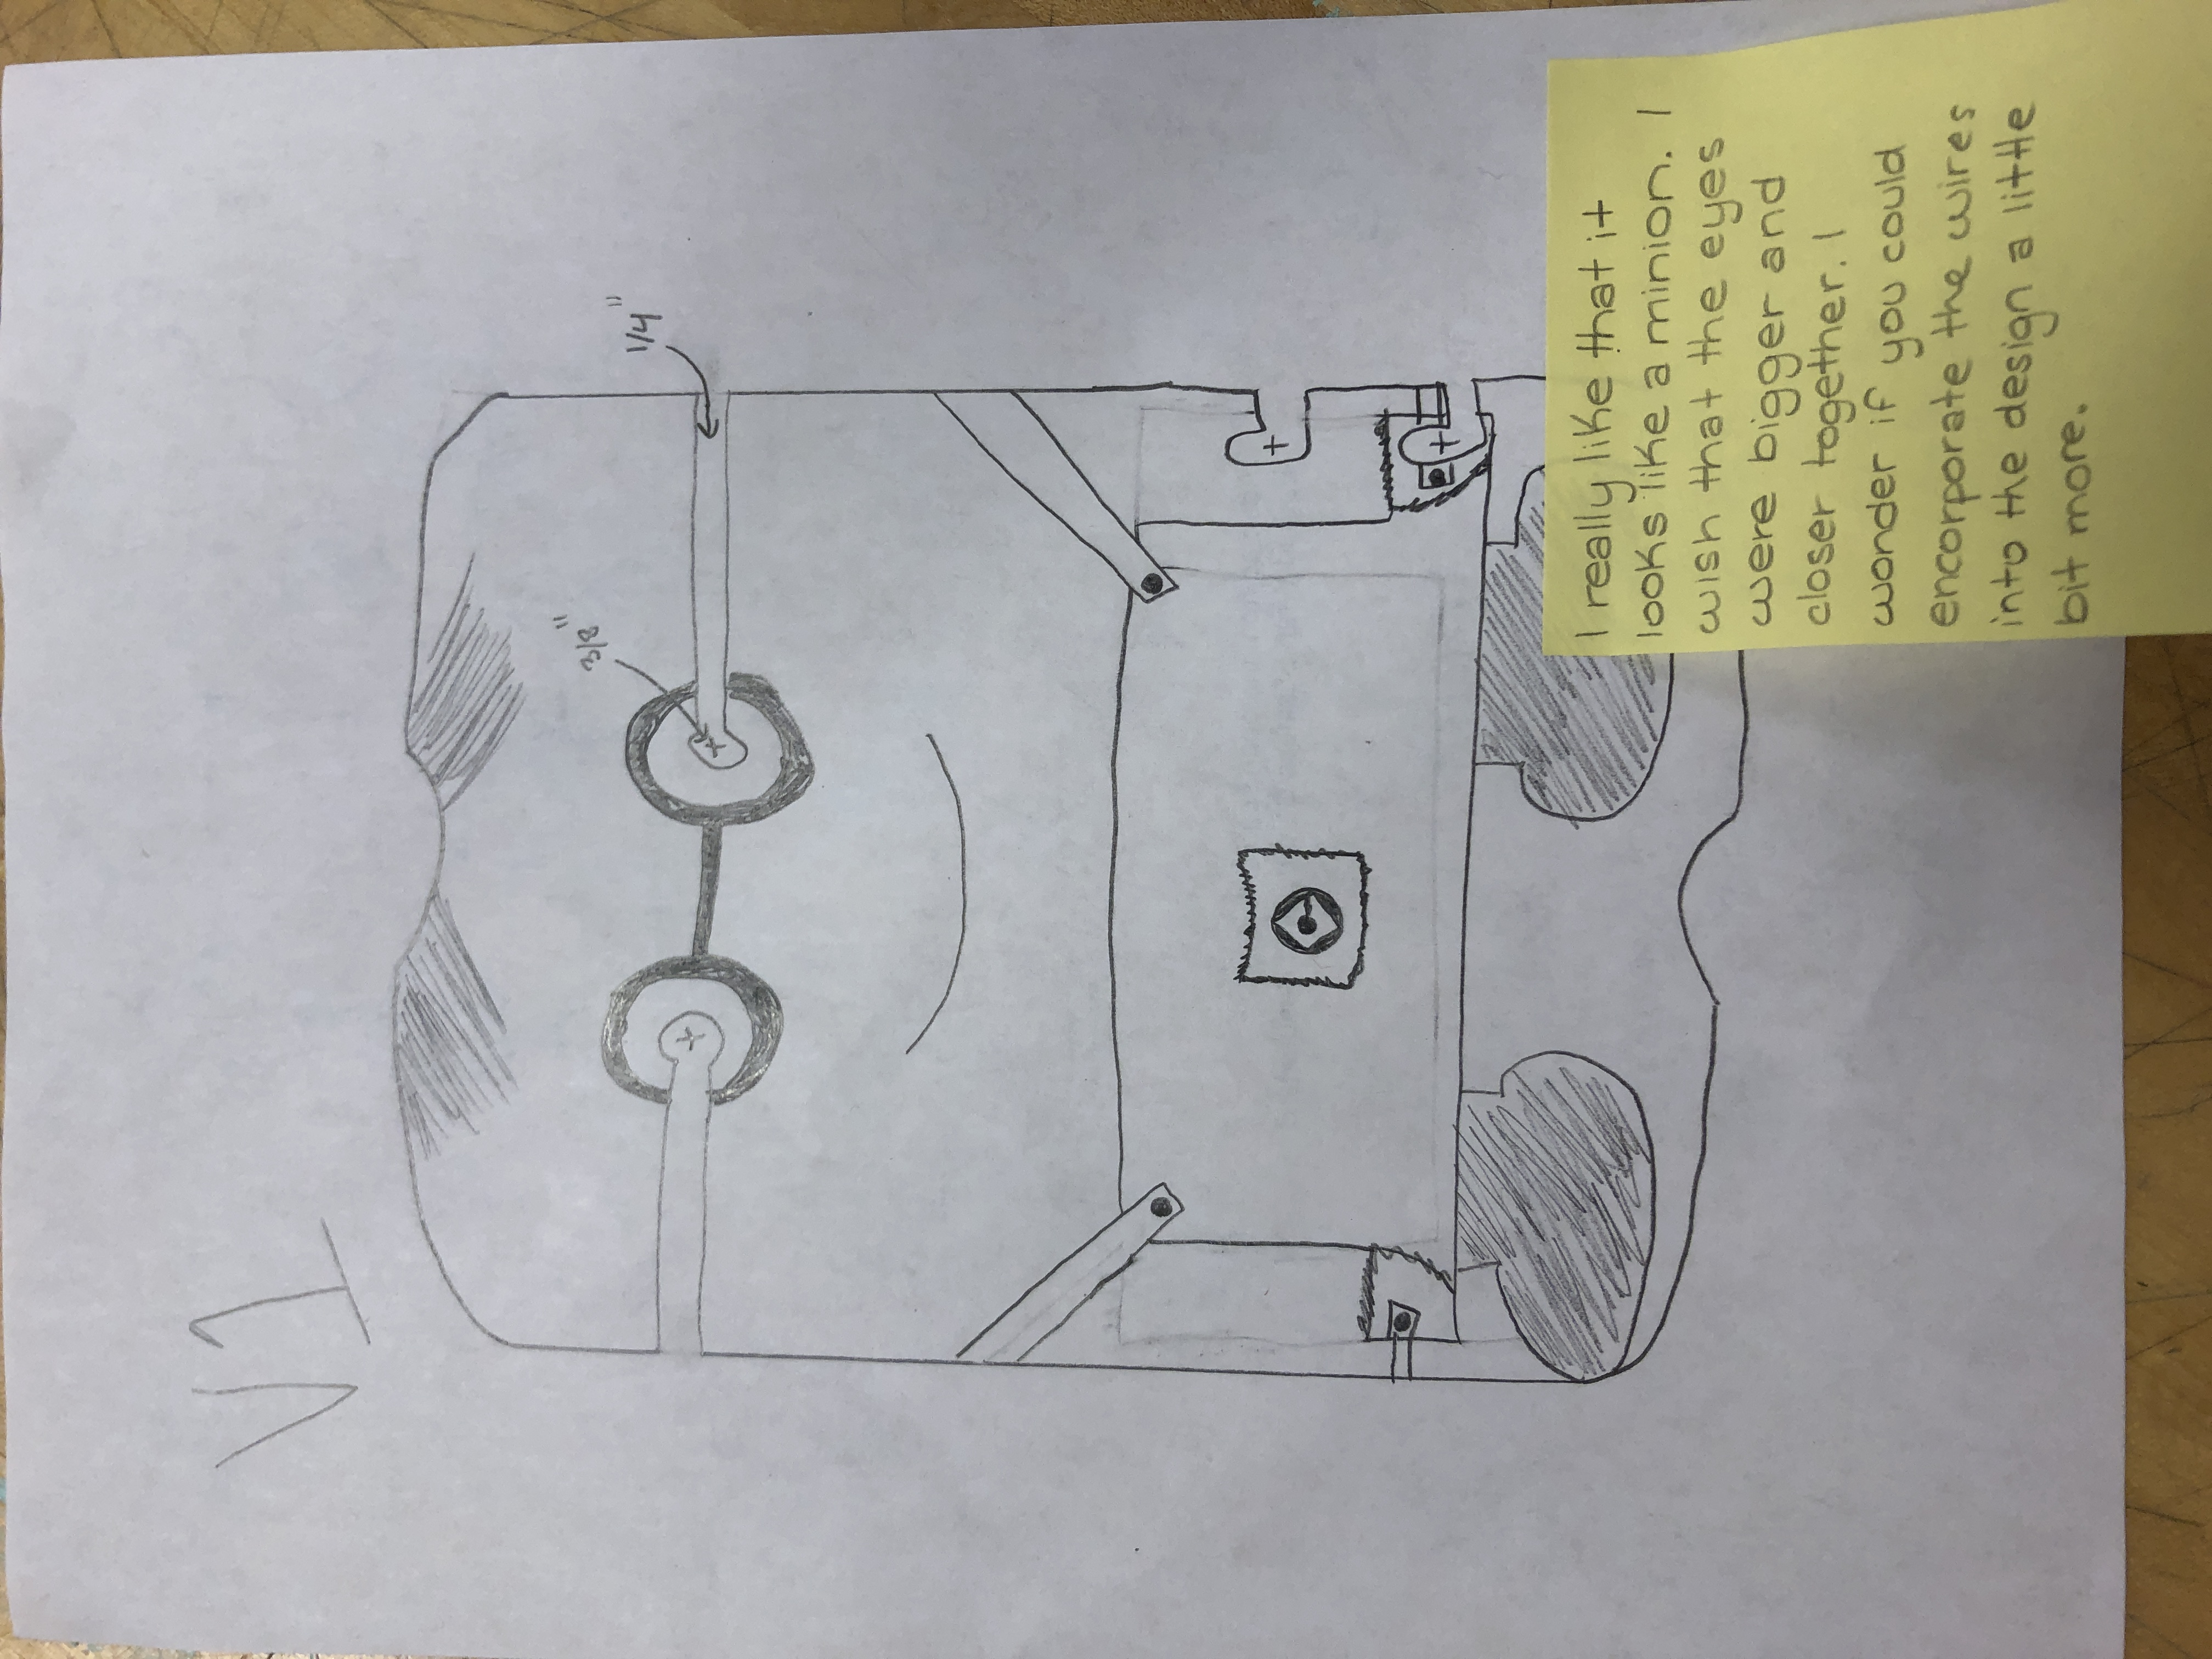 V1
3/8"
1/4"
I really like that it
looks like a minion. I
wish that the eyes
were bigger and
closer together. I
wonder if you could
encorporate the wires
into the design a little
bit more.